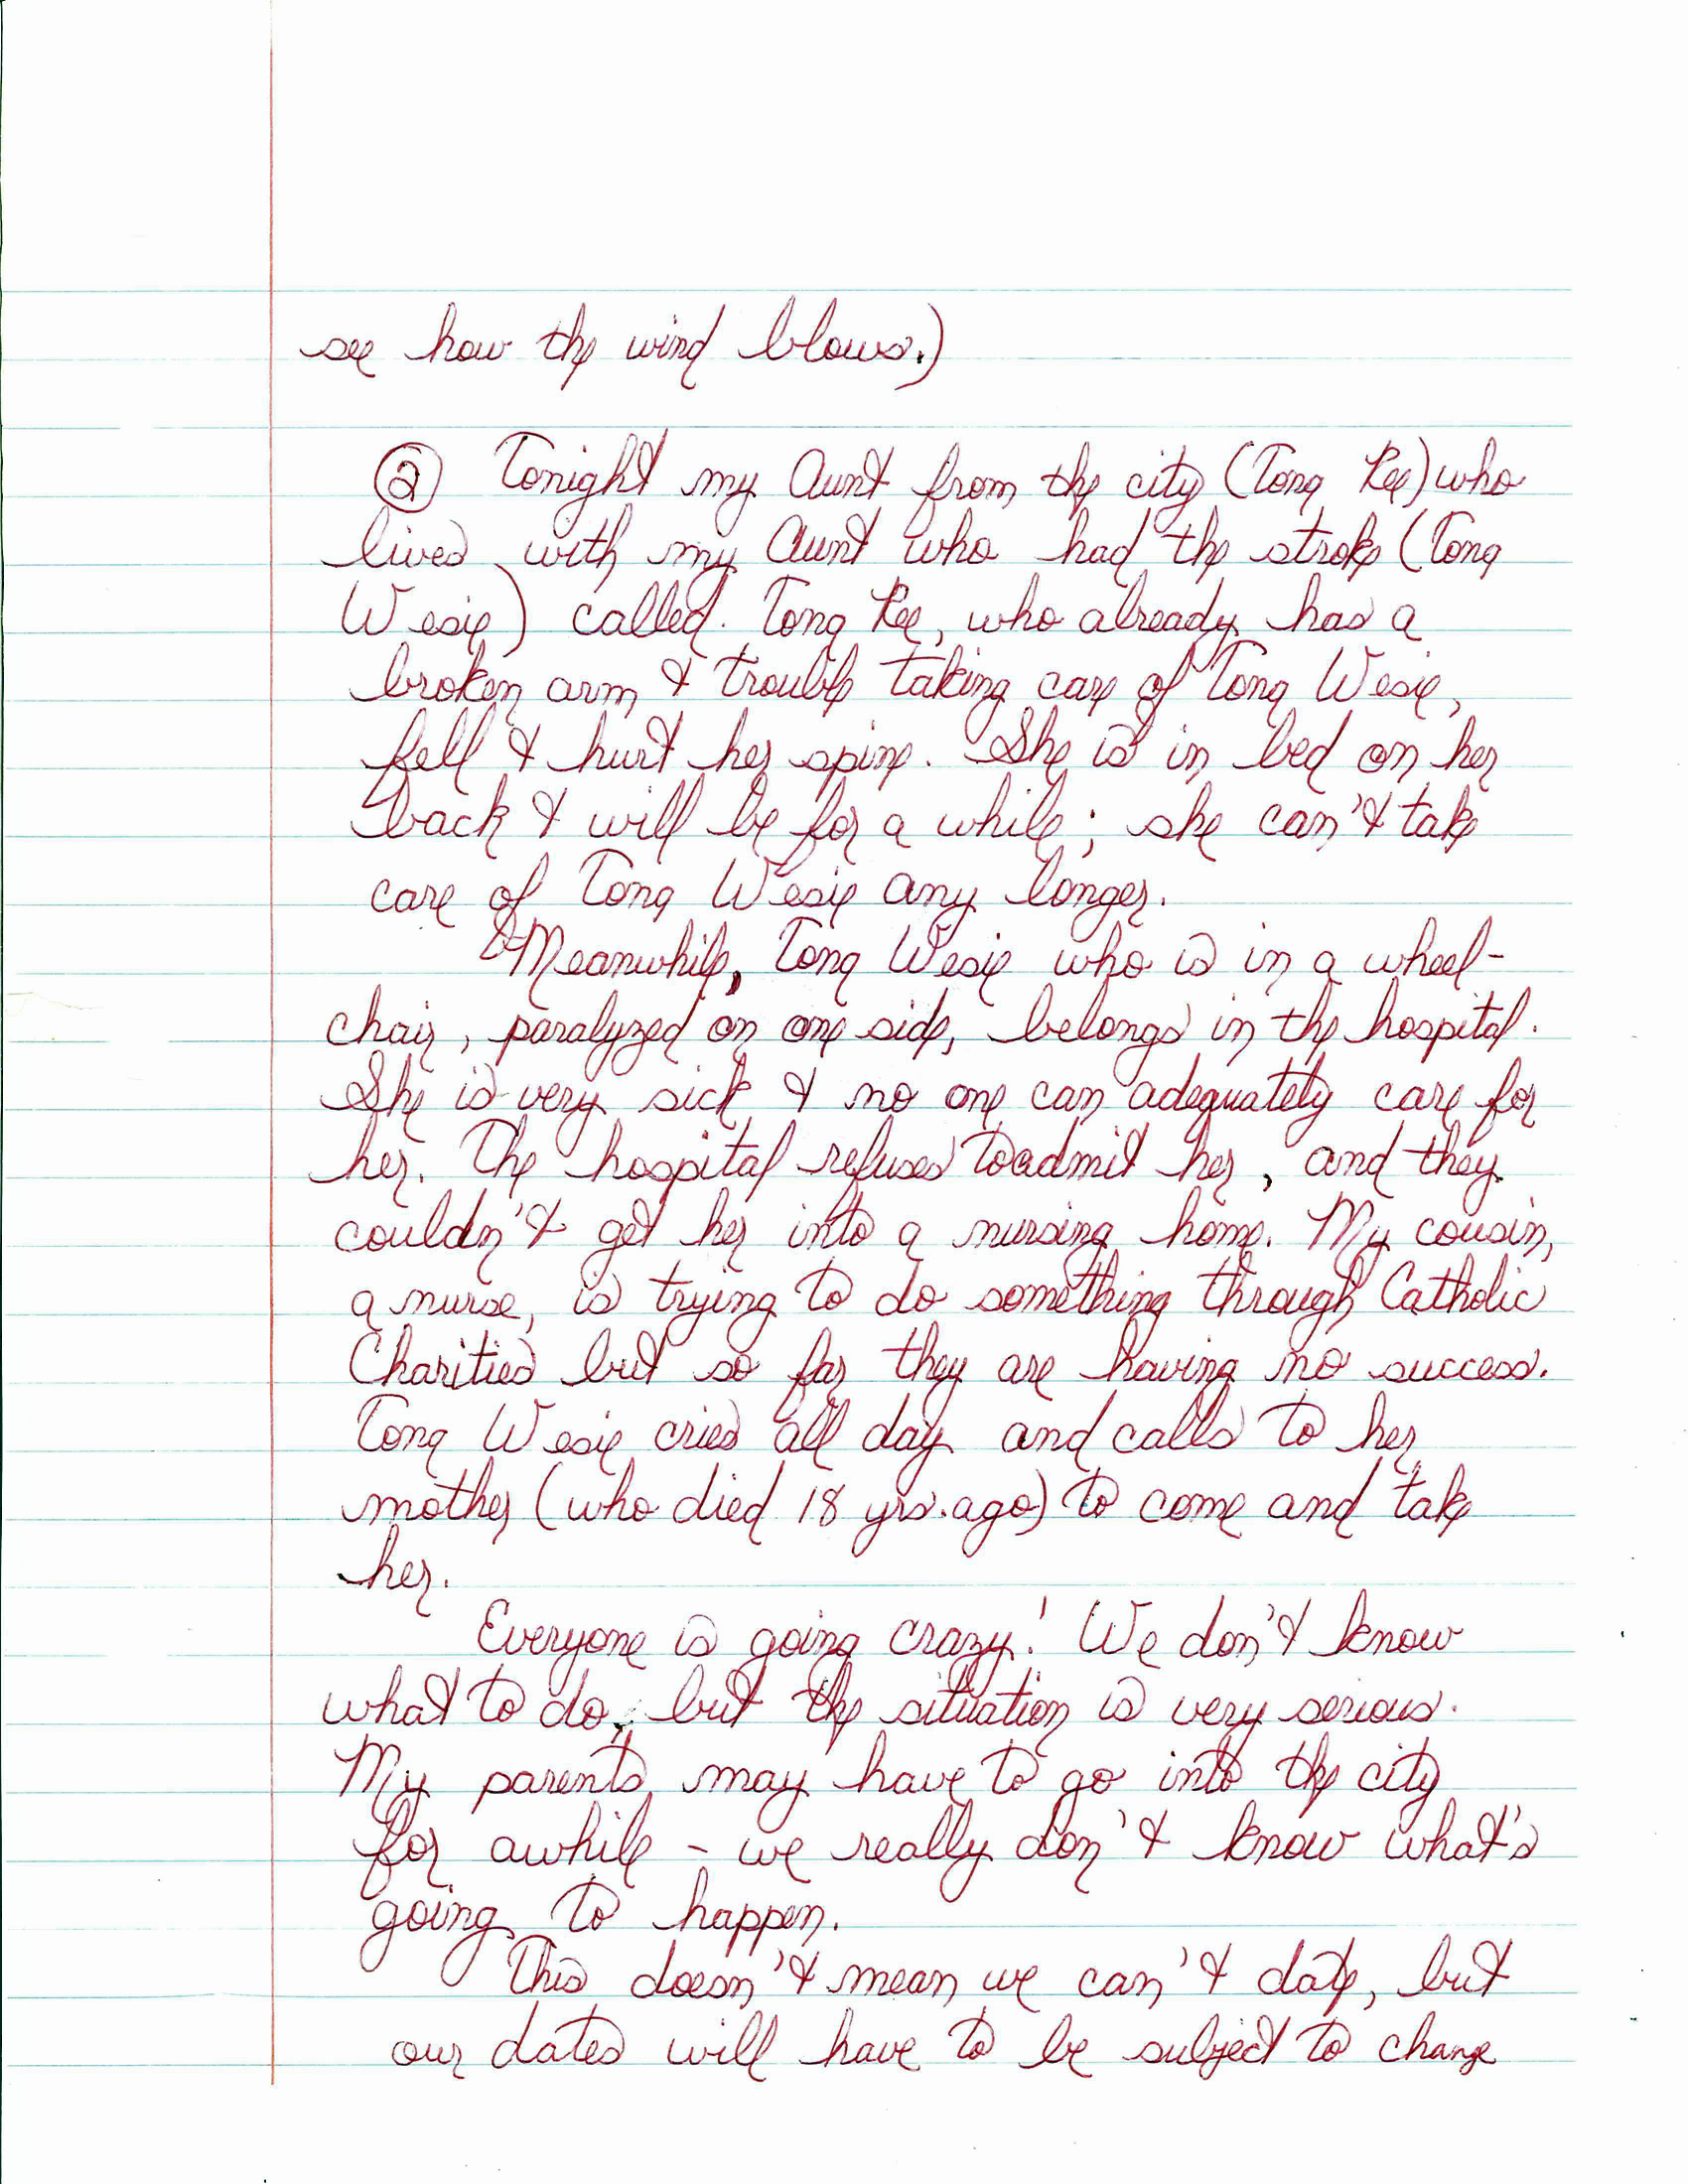 see how the wind blows.)
② Tonight my Aunt from the city (Tong Kee) who
lives with my Aunt who had the stroke (Tong
Wesie) called. Tong Kee, who already has a
broken arm & trouble taking care of Tong Wesie,
fell & hurt her spine. She is in bed on her
back & will be for a while; she can't take
care of Tong Wesie any longer.
Meanwhile, Tong Wesie who is in a wheel-
chair, paralyzed on one side, belongs in the hospital.
She is very sick & no one can adequately care for
her. The hospital refuses to admit her, and they
couldn't get her into a nursing home. My cousin,
a nurse, is trying to do something through Catholic
Charities but so far they are having no success.
Tong Wesie cries all day and calls to her
mother (who died 18 yrs. ago) to come and take
her.
Everyone is going crazy! We don't know
what to do, but the situation is very serious.
My parents may have to go into the city
for awhile - we really don't know what's
going to happen.
This doesn't mean we can't date, but
our dates will have to be subject to change